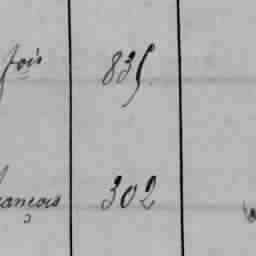 fois 835
ançois 302